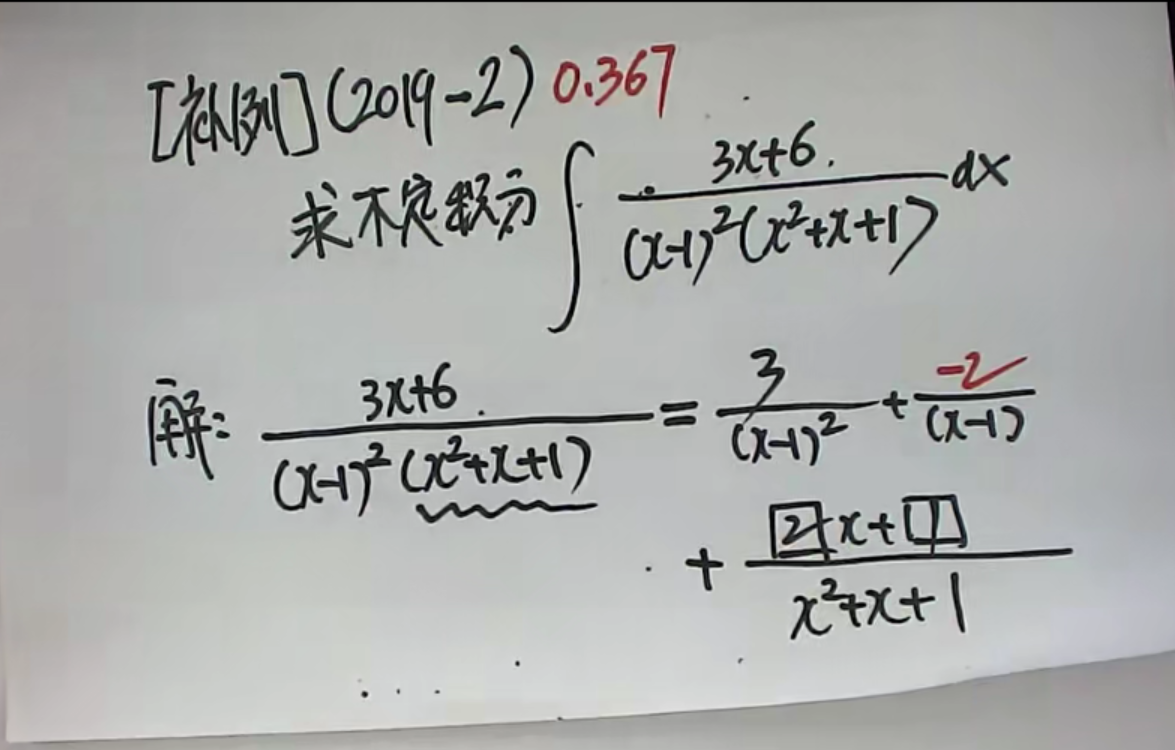 [补例](2019-2) 0.367
求不定积分 ∫ (3x+6)/((x-1)²(x²+x+1)) dx
解: (3x+6)/((x-1)²(x²+x+1)) = 3/(x-1)² + -2/(x-1)
+ (2x+1)/(x²+x+1)